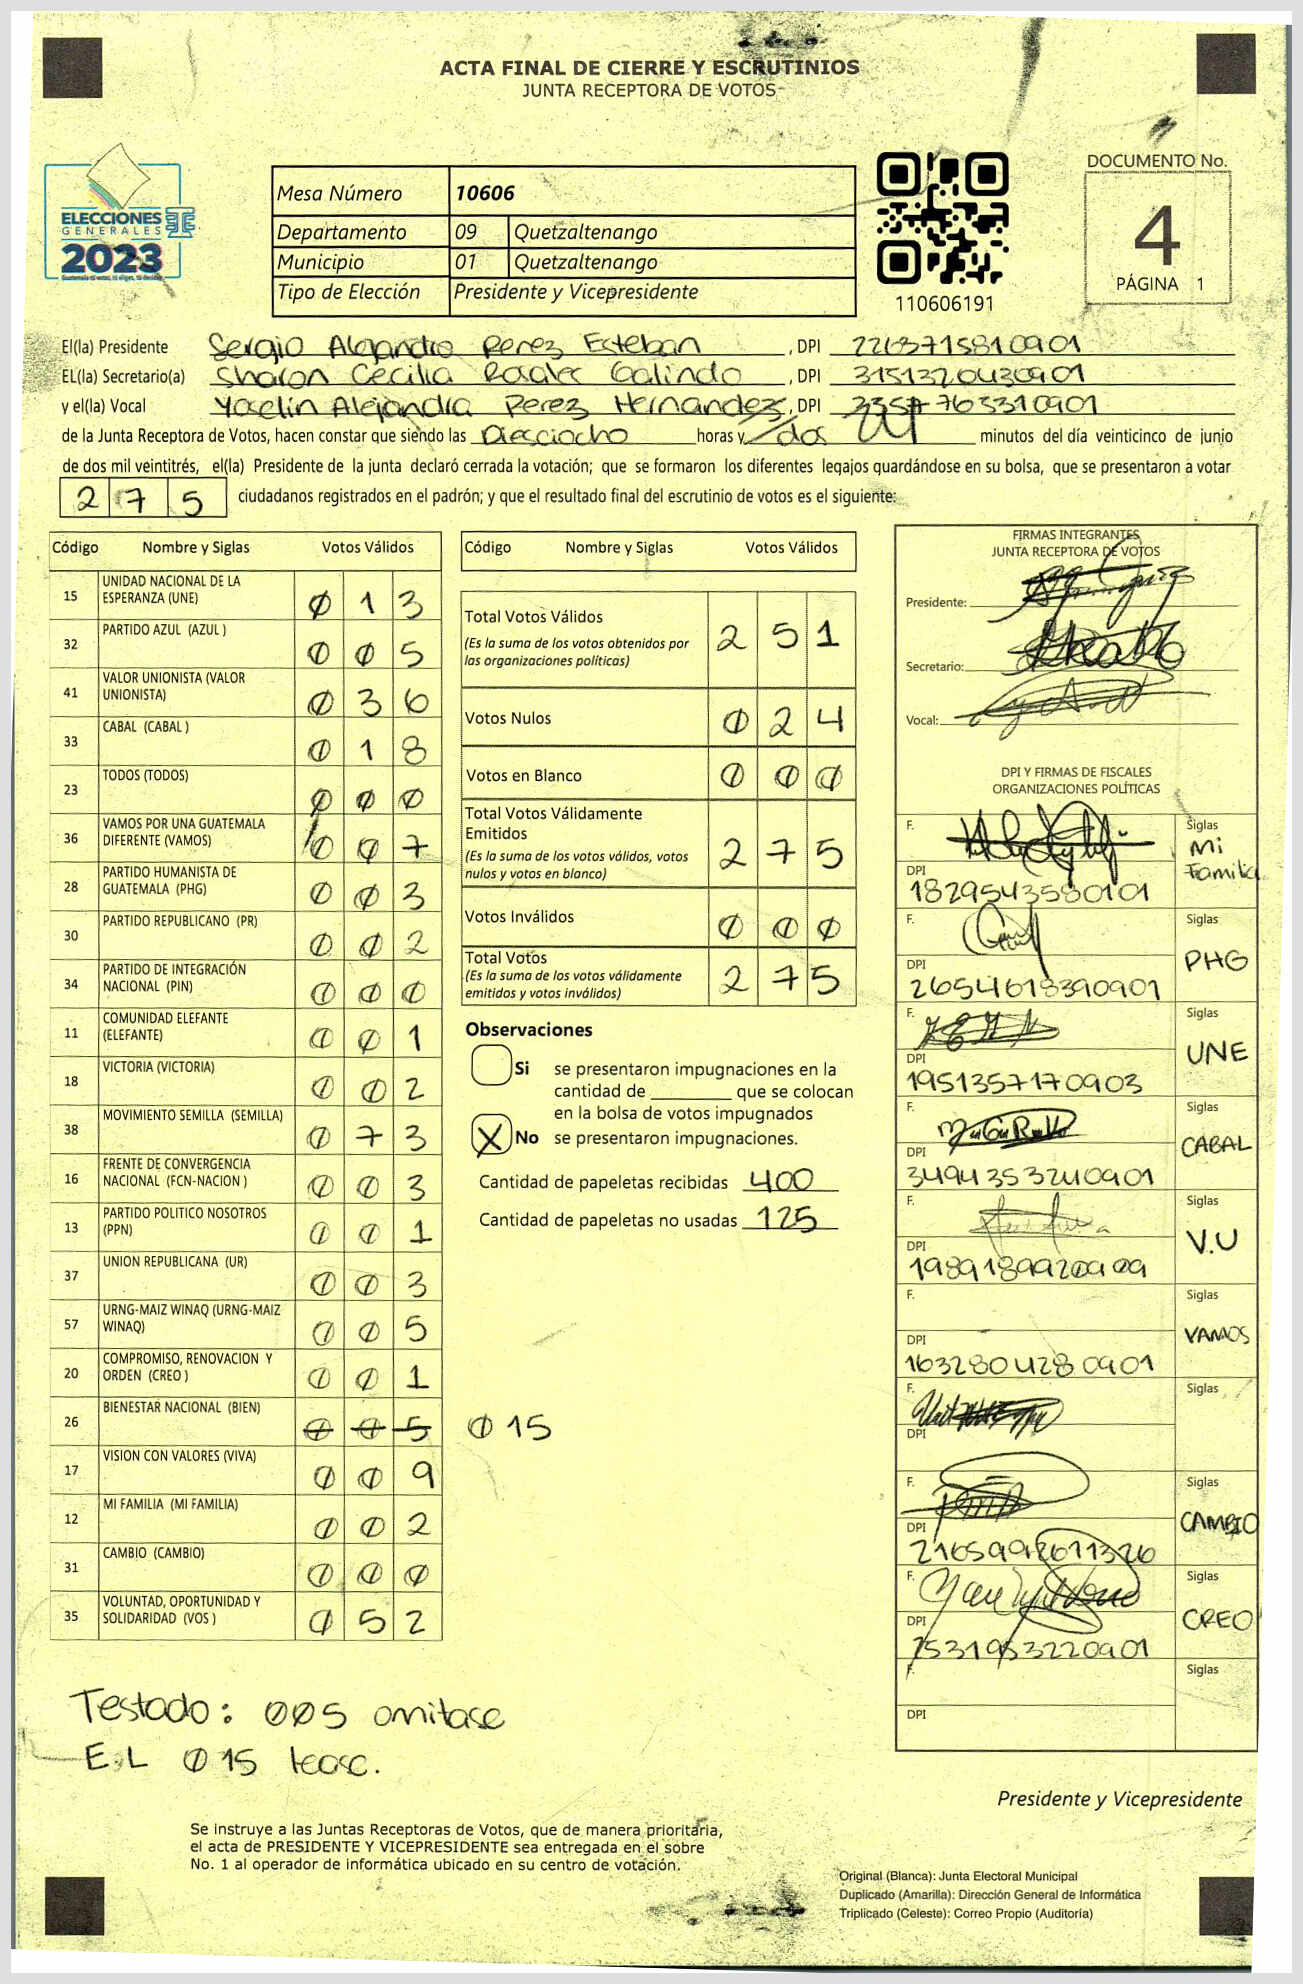 ACTA FINAL DE CIERRE Y ESCRUTINIOS
JUNTA RECEPTORA DE VOTOS
ELECCIONES
GENERALES
2023
Mesa Número 10606
Departamento 09 Quetzaltenango
Municipio 01 Quetzaltenango
Tipo de Elección Presidente y Vicepresidente
110606191
DOCUMENTO No.
4
PÁGINA 1
El(la) Presidente Sergio Alejandro Perez Esteban , DPI 2263715810901
EL(la) Secretario(a) Sharon Cecilia Rosales Galindo , DPI 3151320430901
y el(la) Vocal Yoselin Alejandra Perez Hernandez , DPI
de la Junta Receptora de Votos, hacen constar que siendo las Dieciocho horas y dos minutos del día veinticinco de junio
de dos mil veintitrés, el(la) Presidente de la junta declaró cerrada la votación; que se formaron los diferentes legajos guardándose en su bolsa, que se presentaron a votar
275 ciudadanos registrados en el padrón; y que el resultado final del escrutinio de votos es el siguiente:
Código Nombre y Siglas Votos Válidos
15 UNIDAD NACIONAL DE LA ESPERANZA (UNE) 0 1 3
32 PARTIDO AZUL (AZUL ) 0 0 5
41 VALOR UNIONISTA (VALOR UNIONISTA) 0 3 6
33 CABAL (CABAL ) 0 1 8
23 TODOS (TODOS) 0 0 0
36 VAMOS POR UNA GUATEMALA DIFERENTE (VAMOS) 0 0 7
28 PARTIDO HUMANISTA DE GUATEMALA (PHG) 0 0 3
30 PARTIDO REPUBLICANO (PR) 0 0 2
34 PARTIDO DE INTEGRACIÓN NACIONAL (PIN) 0 0 0
11 COMUNIDAD ELEFANTE (ELEFANTE) 0 0 1
18 VICTORIA (VICTORIA) 0 0 2
38 MOVIMIENTO SEMILLA (SEMILLA) 0 7 3
16 FRENTE DE CONVERGENCIA NACIONAL (FCN-NACION ) 0 0 3
13 PARTIDO POLITICO NOSOTROS (PPN) 0 0 1
37 UNION REPUBLICANA (UR) 0 0 3
57 URNG-MAIZ WINAQ (URNG-MAIZ WINAQ) 0 0 5
20 COMPROMISO, RENOVACION Y ORDEN (CREO ) 0 0 1
26 BIENESTAR NACIONAL (BIEN) 0 0 5 0 15
17 VISION CON VALORES (VIVA) 0 0 9
12 MI FAMILIA (MI FAMILIA) 0 0 2
31 CAMBIO (CAMBIO) 0 0 0
35 VOLUNTAD, OPORTUNIDAD Y SOLIDARIDAD (VOS ) 0 5 2
Código Nombre y Siglas Votos Válidos
Total Votos Válidos 2 5 1
(Es la suma de los votos obtenidos por
las organizaciones políticas)
Votos Nulos 0 2 4
Votos en Blanco 0 0 0
Total Votos Válidamente
Emitidos 2 7 5
(Es la suma de los votos válidos, votos
nulos y votos en blanco)
Votos Inválidos 0 0 0
Total Votos 2 7 5
(Es la suma de los votos válidamente
emitidos y votos inválidos)
Observaciones
Si se presentaron impugnaciones en la
cantidad de que se colocan
en la bolsa de votos impugnados
X No se presentaron impugnaciones.
Cantidad de papeletas recibidas 400
Cantidad de papeletas no usadas 125
FIRMAS INTEGRANTES
JUNTA RECEPTORA DE VOTOS
Presidente:
Secretario:
Vocal:
DPI Y FIRMAS DE FISCALES
ORGANIZACIONES POLÍTICAS
F. Siglas Mi Familia
DPI 1829543580101
F. Siglas PHG
DPI 2654618390901
F. Siglas UNE
DPI 1951357170903
F. Siglas CABAL
DPI 3494353240901
F. Siglas V.U
DPI 1989189920909
F. Siglas VAMOS
DPI 1632804280901
F. Siglas
DPI
F. Siglas CAMBIO
DPI
F. Siglas CREO
DPI 2531953220901
F. Siglas
DPI
Testado: 005 omitase
E.L 0 15 lease.
Presidente y Vicepresidente
Se instruye a las Juntas Receptoras de Votos, que de manera prioritaria,
el acta de PRESIDENTE Y VICEPRESIDENTE sea entregada en el sobre
No. 1 al operador de informática ubicado en su centro de votación.
Original (Blanca): Junta Electoral Municipal
Duplicado (Amarilla): Dirección General de Informática
Triplicado (Celeste): Correo Propio (Auditoría)